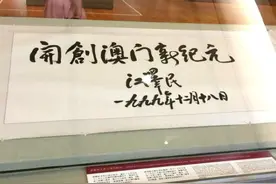 開創澳门新纪元
江泽民
一九九九年十二月十八日